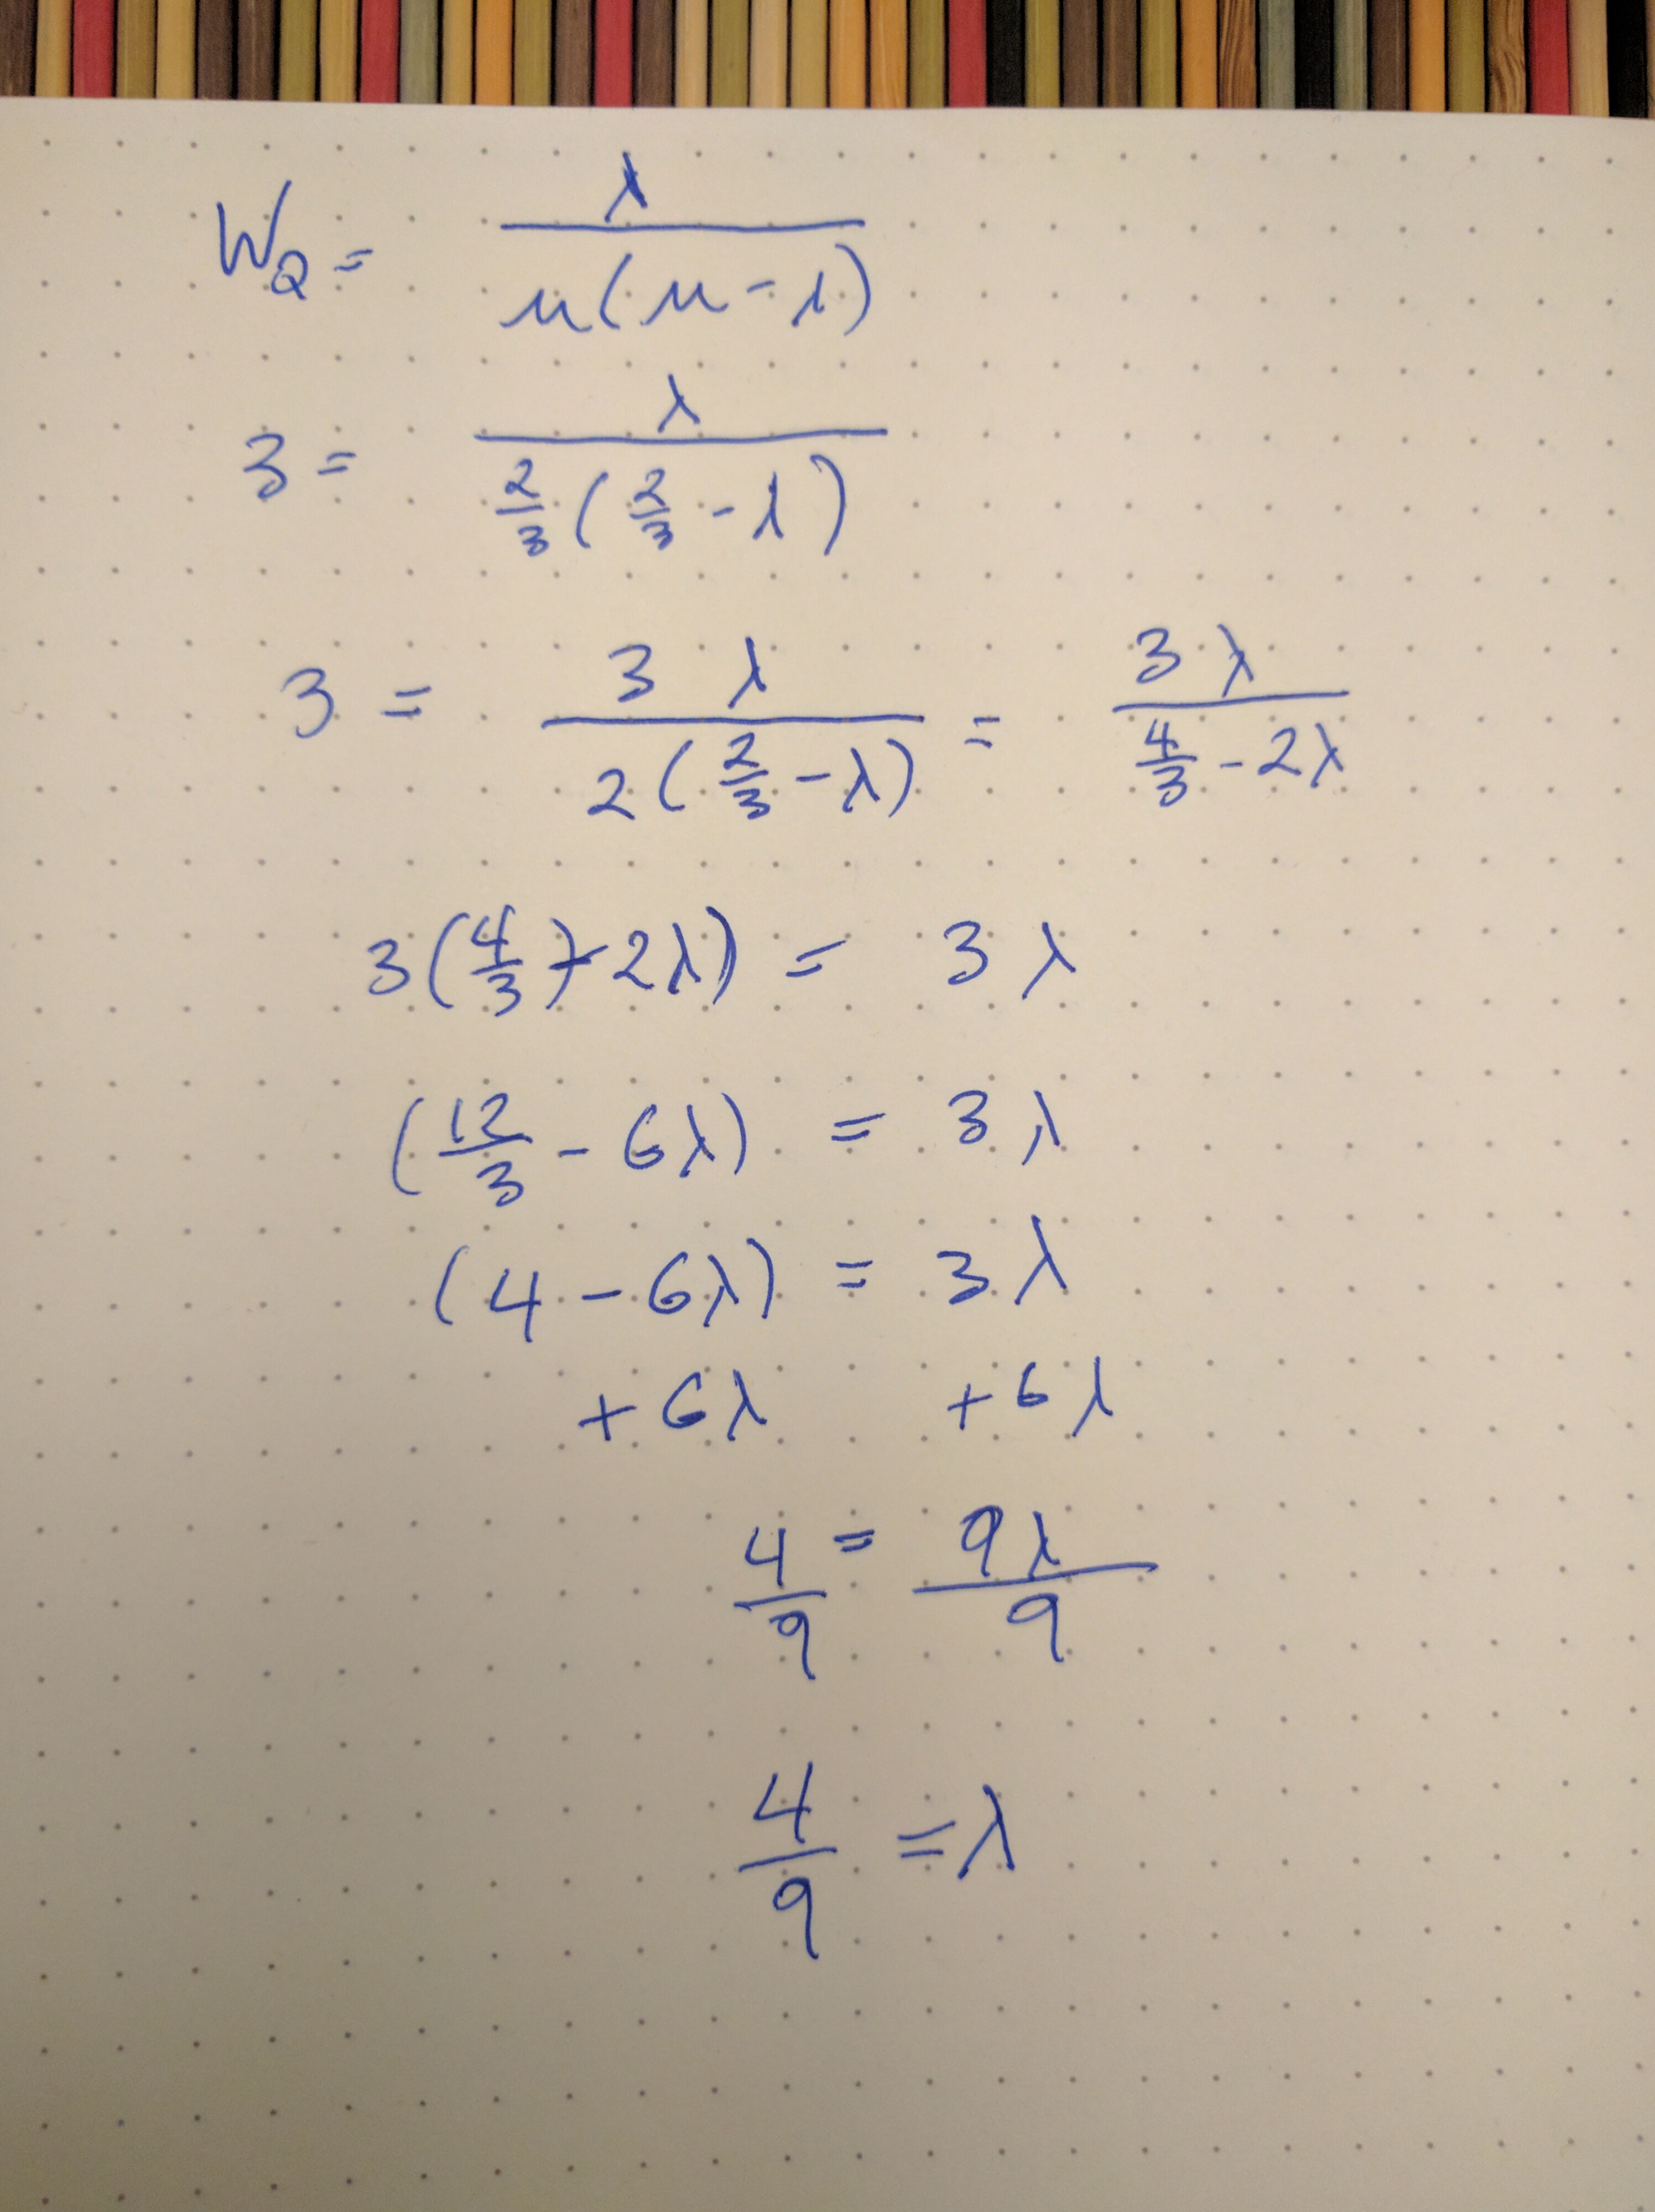 W_Q = λ / μ(μ - λ)
3 = λ / 2/3 (2/3 - λ)
3 = 3 λ / 2(2/3 - λ) = 3 λ / 4/3 - 2λ
3(4/3 - 2λ) = 3 λ
(12/3 - 6λ) = 3 λ
(4 - 6λ) = 3 λ
+ 6λ + 6 λ
4/9 = 9λ/9
4/9 = λ